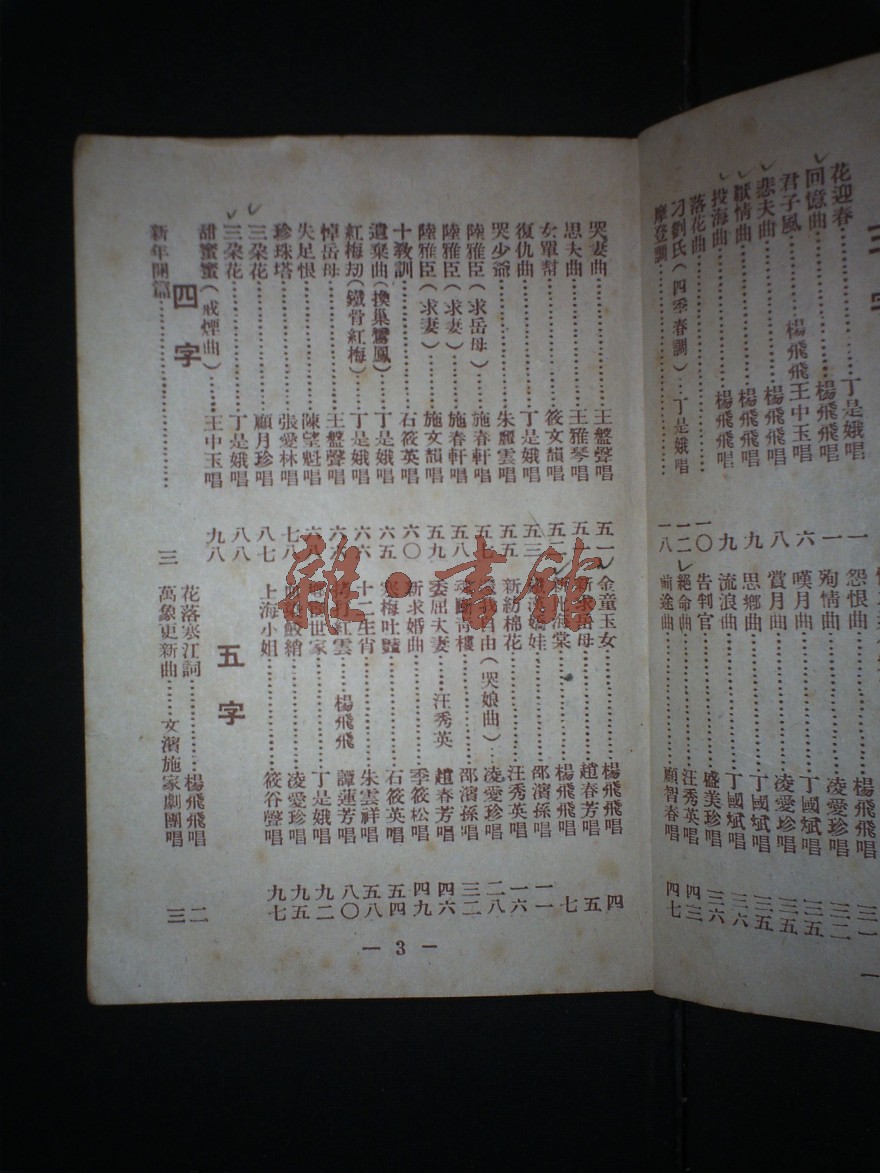 三字
花迎春 丁是娥唱 一
回憶曲 楊飛飛唱 一
君子風 楊飛飛王中玉唱 八
悲夫曲 楊飛飛唱 六
厭情曲 楊飛飛唱 九
投海曲 楊飛飛唱 九
落花曲
刁劉氏(四季春調) 丁是娥唱
摩登調 一八
怨恨曲 三一
殉情曲 凌愛珍唱 三二
嘆月曲 丁國斌唱 三五
賞月曲 凌愛珍唱 三五
思鄉曲 丁國斌唱 三五
流浪曲 丁國斌唱 三六
告判官 盛美珍唱 三六
絕命曲 汪秀英唱 四三
前途曲 顧智春唱 四七
哭妻曲 王盤聲唱 五一
思夫曲 王雅琴唱
女單幫 筱文韻唱
復仇曲 丁是娥唱 五三
哭少爺 朱麗雲唱 五五
陸雅臣(求岳母) 施春軒唱
陸雅臣(求妻) 施春軒唱 五八
陸雅臣(求妻) 施文韻唱 五九
十教訓 石筱英唱 六〇
遺棄曲(換巢鸞鳳) 丁是娥唱 六五
紅梅刧(鐵骨紅梅) 丁是娥唱 六六
悼岳母 王盤聲唱
失足恨 陳望魁唱
珍珠塔 張愛林唱 七八
三朵花 顧月珍唱 八七
三朵花 丁是娥唱 八八
甜蜜蜜(戒煙曲) 王中玉唱 九八
四字
新年開篇 三
金童玉女 楊飛飛唱 四
新求岳母 趙春芳唱 五
海棠 楊飛飛唱 七
嬌娃 邵濱孫唱 一一
新紡棉花 汪秀英唱 一六
自由(哭娘曲) 凌愛珍唱 二八
青樓 邵濱孫唱 三二
委屈夫妻 汪秀英 趙春芳唱 四六
新求婚曲 季筱松唱 四九
寒梅吐豔 石筱英唱 五四
十二生肖 朱雲祥唱 五八
紅雲 楊飛飛 譚蓮芳唱 八〇
世家 丁是娥唱 九二
鮫綃 凌愛珍唱 九五
上海小姐 筱谷聲唱 九七
五字
花落寒江詞 楊飛飛唱 二
萬象更新曲 文濱施家劇團唱 三
— 3 —
雜·書館